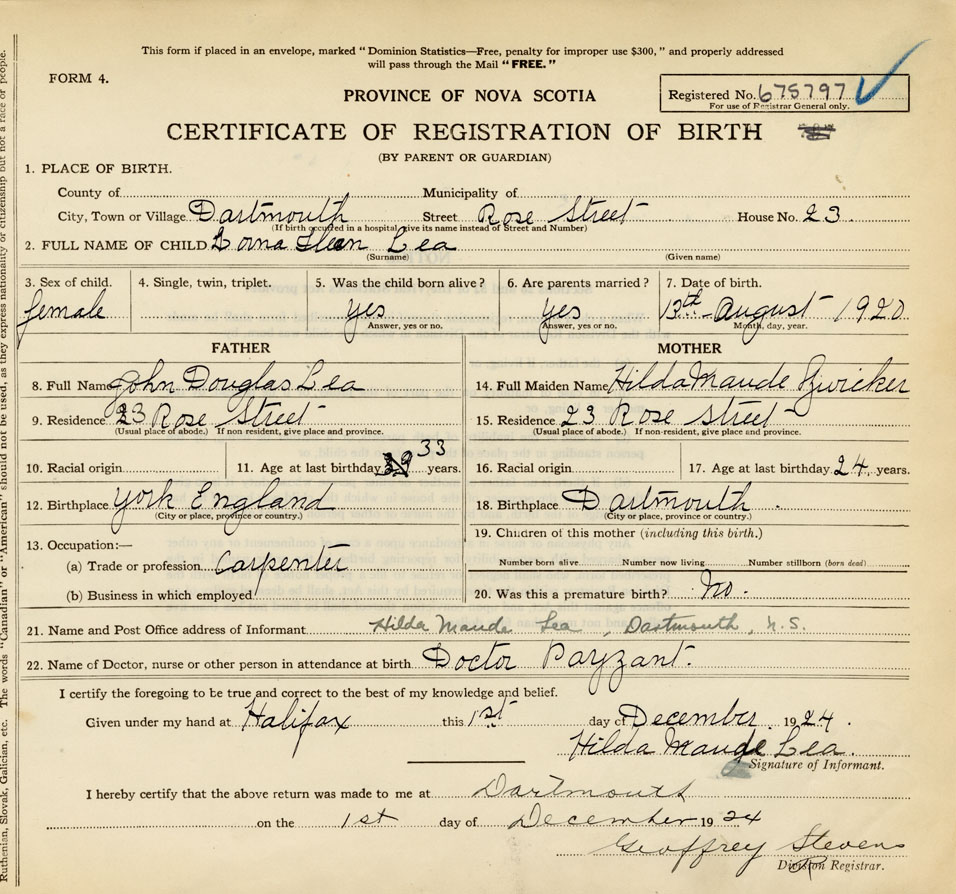 This form if placed in an envelope, marked "Dominion Statistics—Free, penalty for improper use $300," and properly addressed
will pass through the Mail "FREE."
FORM 4.
Registered No. 675797
For use of Registrar General only.
PROVINCE OF NOVA SCOTIA
CERTIFICATE OF REGISTRATION OF BIRTH
(BY PARENT OR GUARDIAN)
1. PLACE OF BIRTH.
County of Municipality of
City, Town or Village Dartmouth Street Rose Street House No. 23
(If birth occurred in a hospital give its name instead of Street and Number)
2. FULL NAME OF CHILD Lorna Lea
(Surname) (Given name)
3. Sex of child. 4. Single, twin, triplet. 5. Was the child born alive? 6. Are parents married? 7. Date of birth.
female yes yes 13th August 1920
Answer, yes or no. Answer, yes or no. Month, day, year.
FATHER MOTHER
8. Full Name John Douglas Lea 14. Full Maiden Name Hilda Maude Zwicker
9. Residence 23 Rose Street 15. Residence 23 Rose Street
(Usual place of abode.) If non-resident, give place and province. (Usual place of abode.) If non-resident, give place and province.
10. Racial origin 11. Age at last birthday 33 years. 16. Racial origin 17. Age at last birthday 24 years.
12. Birthplace York England 18. Birthplace Dartmouth.
(City or place, province or country.) (City or place, province or country.)
13. Occupation:— 19. Children of this mother (including this birth.)
(a) Trade or profession Carpenter Number born alive Number now living Number stillborn (born dead)
(b) Business in which employed 20. Was this a premature birth? No.
21. Name and Post Office address of Informant Hilda Maude Lea, Dartmouth, N.S.
22. Name of Doctor, nurse or other person in attendance at birth Doctor Payzant.
I certify the foregoing to be true and correct to the best of my knowledge and belief.
Given under my hand at Halifax this 1st day of December 1924.
Hilda Maude Lea.
Signature of Informant.
I hereby certify that the above return was made to me at Dartmouth
on the 1st day of December 1924
Geoffrey Stevens
Division Registrar.
Ruthenian, Slovak, Galician, etc. The words "Canadian" or "American" should not be used, as they express nationality or citizenship but not a race or people.